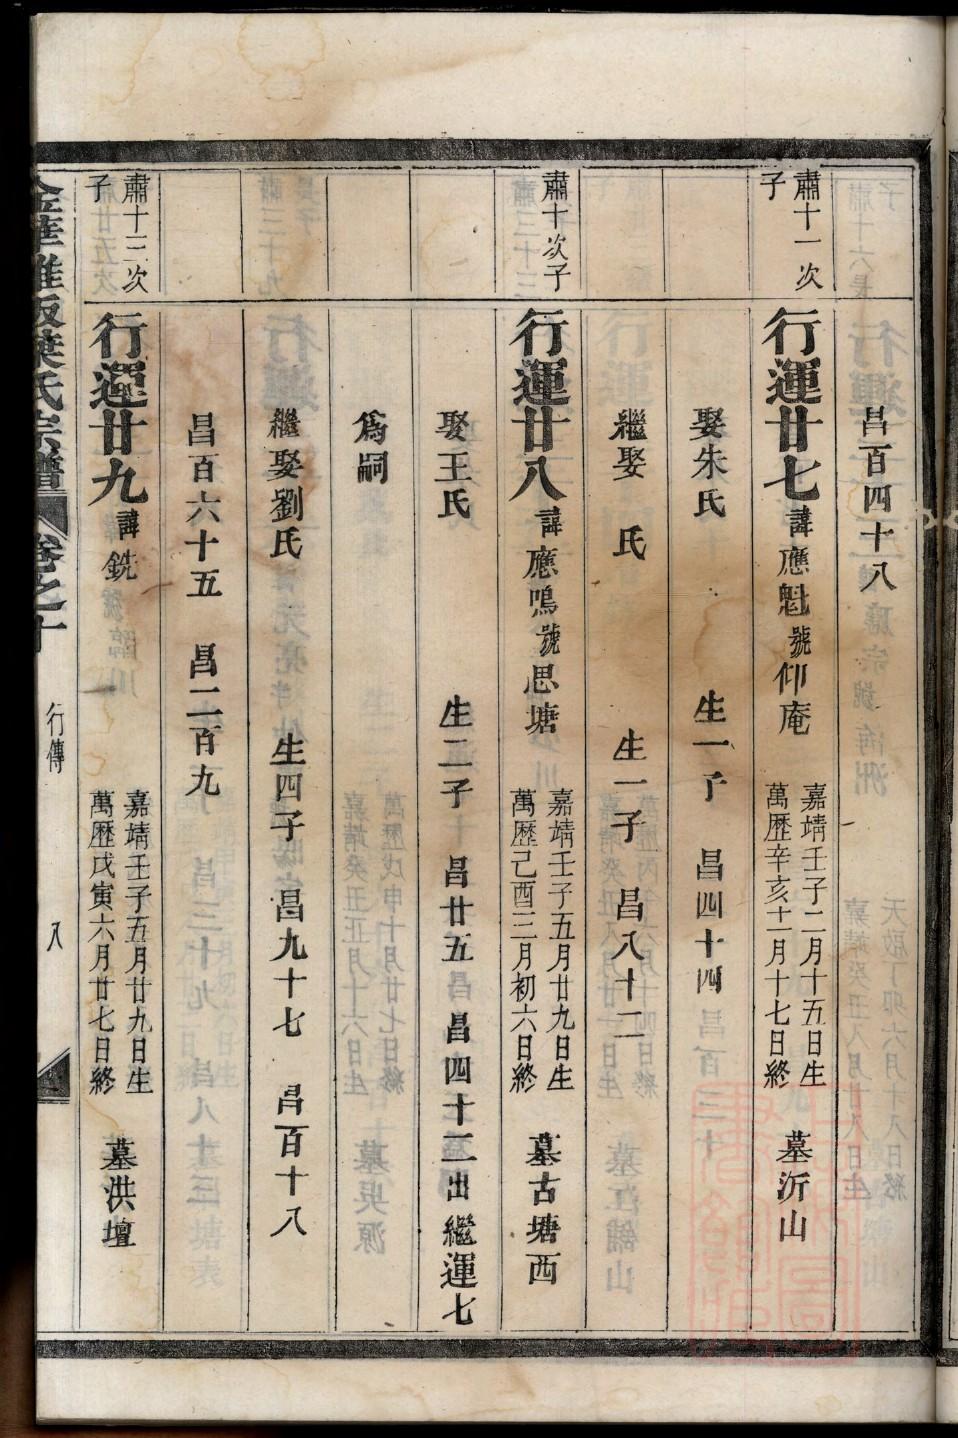 昌百四十八
肅十一次子
行運廿七 諱應魁號仰庵 嘉靖壬子二月十五日生 萬歷辛亥十一月十七日終 墓沂山
娶朱氏 生一子 昌四十四
繼娶 氏 生一子 昌八十二
肅十次子
行運廿八 諱應鳴號思塘 嘉靖壬子五月廿九日生 萬歷己酉三月初六日終 墓古塘西
娶王氏 生二子 昌廿五 昌四十三出繼運七
爲嗣
繼娶劉氏 生四子 昌九十七 昌百十八
昌百六十五 昌二百九
肅十三次子
行運廿九 諱銑號臨川 嘉靖壬子五月廿九日生 萬歷戊寅六月廿七日終 墓洪壇
葉氏宗譜 卷之十 行傳 八